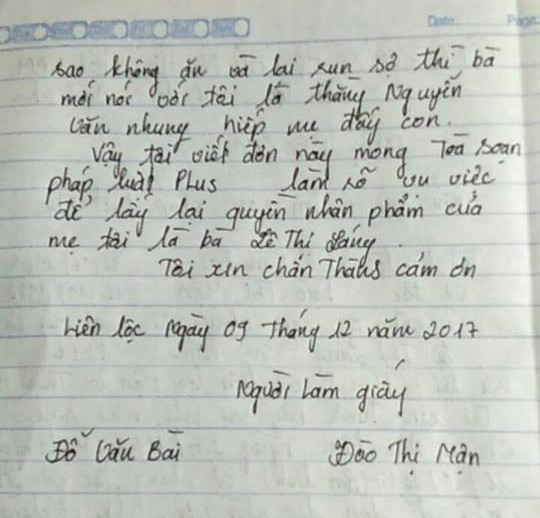 Date: Page:
sao không ăn và lại run sợ thì bà
mới nói với tôi là thằng Nguyễn
văn nhung hiếp mẹ đấy con.
Vậy tôi viết đơn này mong Toà soạn
pháp luật Plus làm rõ vụ việc
để lấy lại quyền nhân phẩm của
mẹ tôi là bà Lê Thị Sáng.
Tôi xin chân Thành cám ơn
Liên lộc Ngày 09 tháng 12 năm 2017
Người Làm giấy
Đỗ Văn Bài Đào Thị Mận